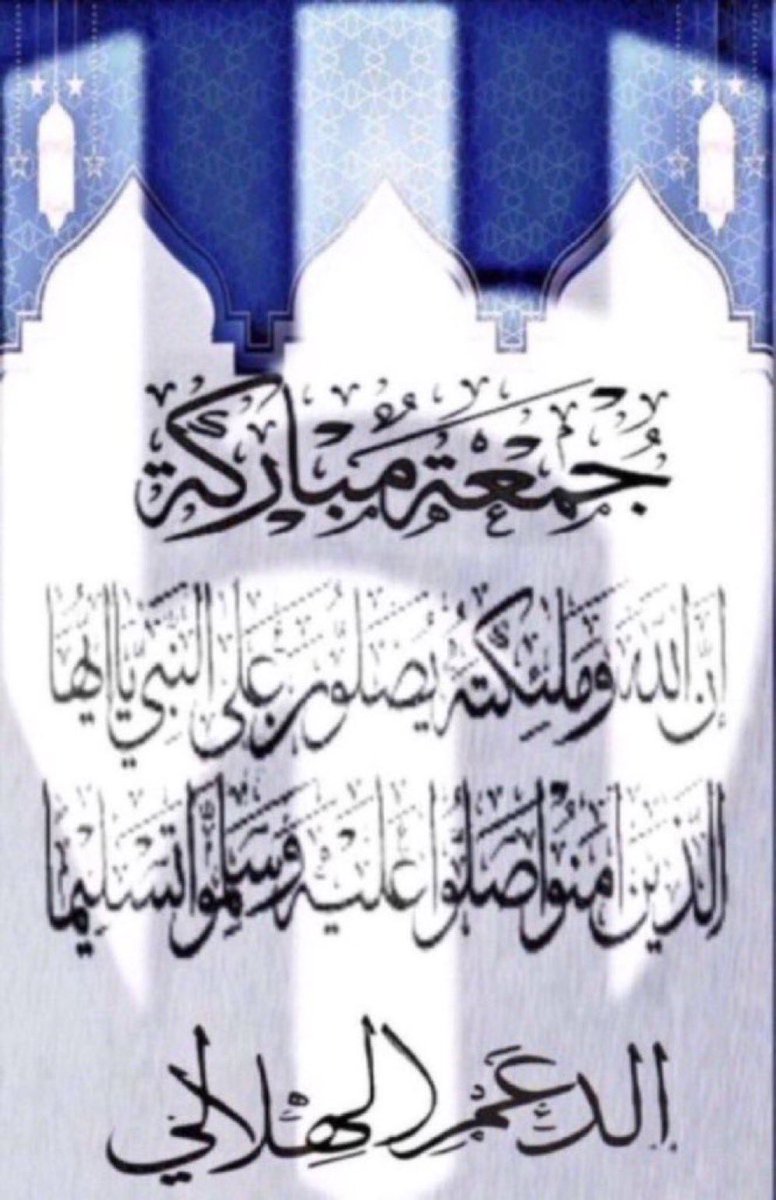 جُمعة مُباركة
إن الله وملئكته يصلون على النبي يا ايها
الذين امنوا صلوا عليه وسلموا تسليما
الدعم الهلالي